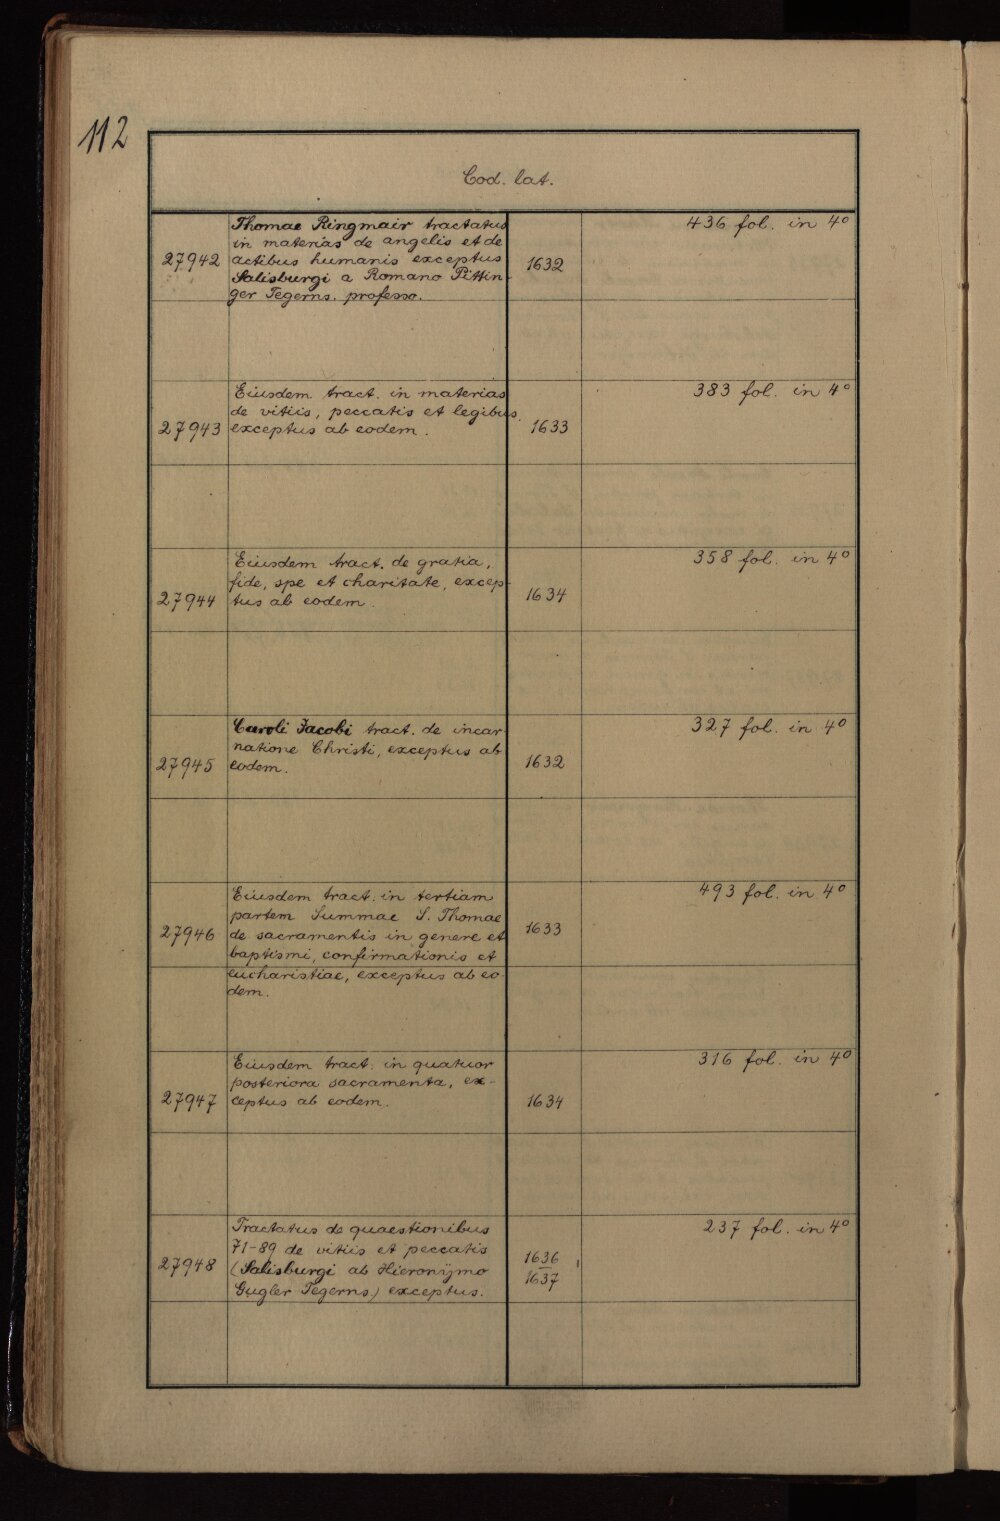 112
Cod. lat.
Thomae Ringmair tractatus
in materias de angelis et de
27942 actibus humanis exceptus 1632 436 fol. in 4°
Salisburgi a Romano Pittin-
ger Tegerns. professo.
Eiusdem tract. in materias 383 fol. in 4°
de vitiis, peccatis et legibus
27943 exceptus ab eodem. 1633
Eiusdem tract. de gratia, 358 fol. in 4°
fide, spe et charitate, excep-
27944 tus ab eodem. 1634
Caroli Jacobi tract. de incar- 327 fol. in 4°
natione Christi, exceptus ab
27945 eodem. 1632
Eiusdem tract. in tertiam 493 fol. in 4°
partem Summae S. Thomae
27946 de sacramentis in genere et 1633
baptismi, confirmationis et
eucharistiae, exceptus ab eo-
dem.
Eiusdem tract. in quatuor 316 fol. in 4°
posteriora sacramenta, ex-
27947 ceptus ab eodem. 1634
Tractatus de quaestionibus 237 fol. in 4°
71-89 de vitiis et peccatis 1636
27948 (Salisburgi ab Hieronymo 1637
Gugler Tegerns.) exceptus.